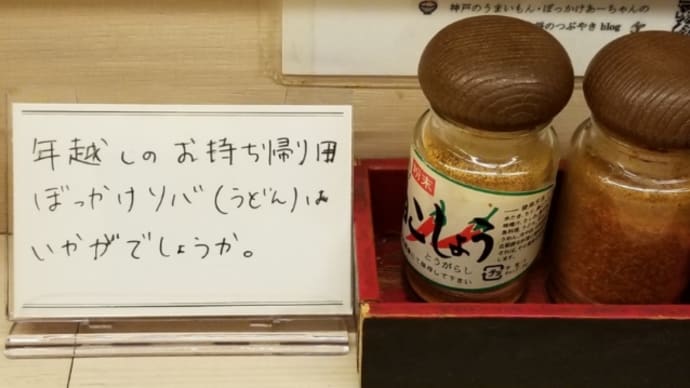 神戸のうまいもん・ぼっかけあーちゃんの
のつぶやき blog
年越しのお持ち帰り用
ぼっかけソバ(うどん)は
いかがでしょうか。
粉末
こしょう
とうがらし